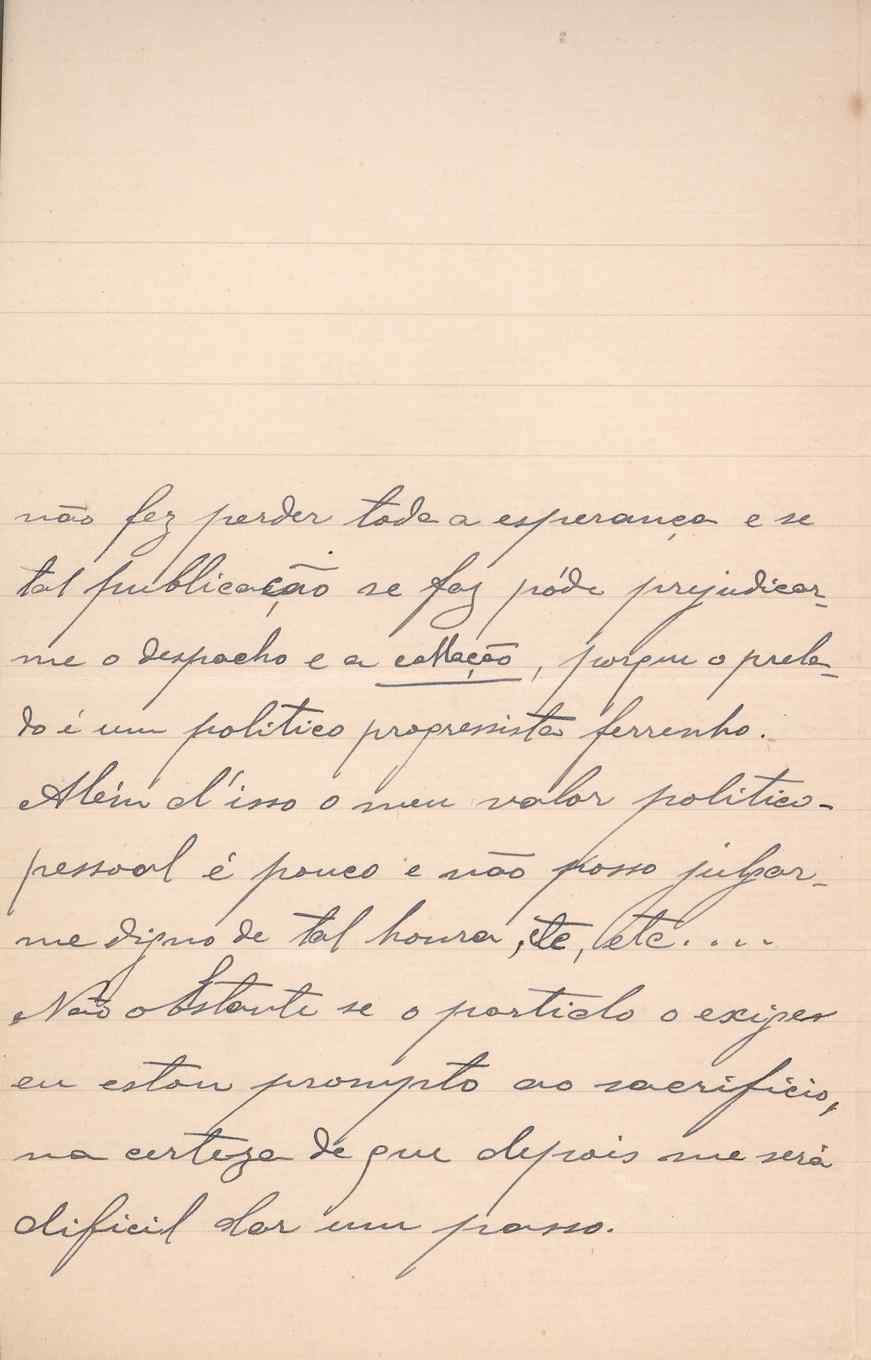 não fez perder toda a esperança e se
tal publicação se faz póde prejudicar-
me o despacho e a collação, porque o prela-
do é um politico progressista ferrenho.
Além d'isso o meu valor politico-
pessoal é pouco e não posso julgar-
me digno de tal honra, etc, etc....
Não obstante se o partido o exiger
eu estou prompto ao sacrificio,
na certeza de que depois me será
dificil dar um passo.